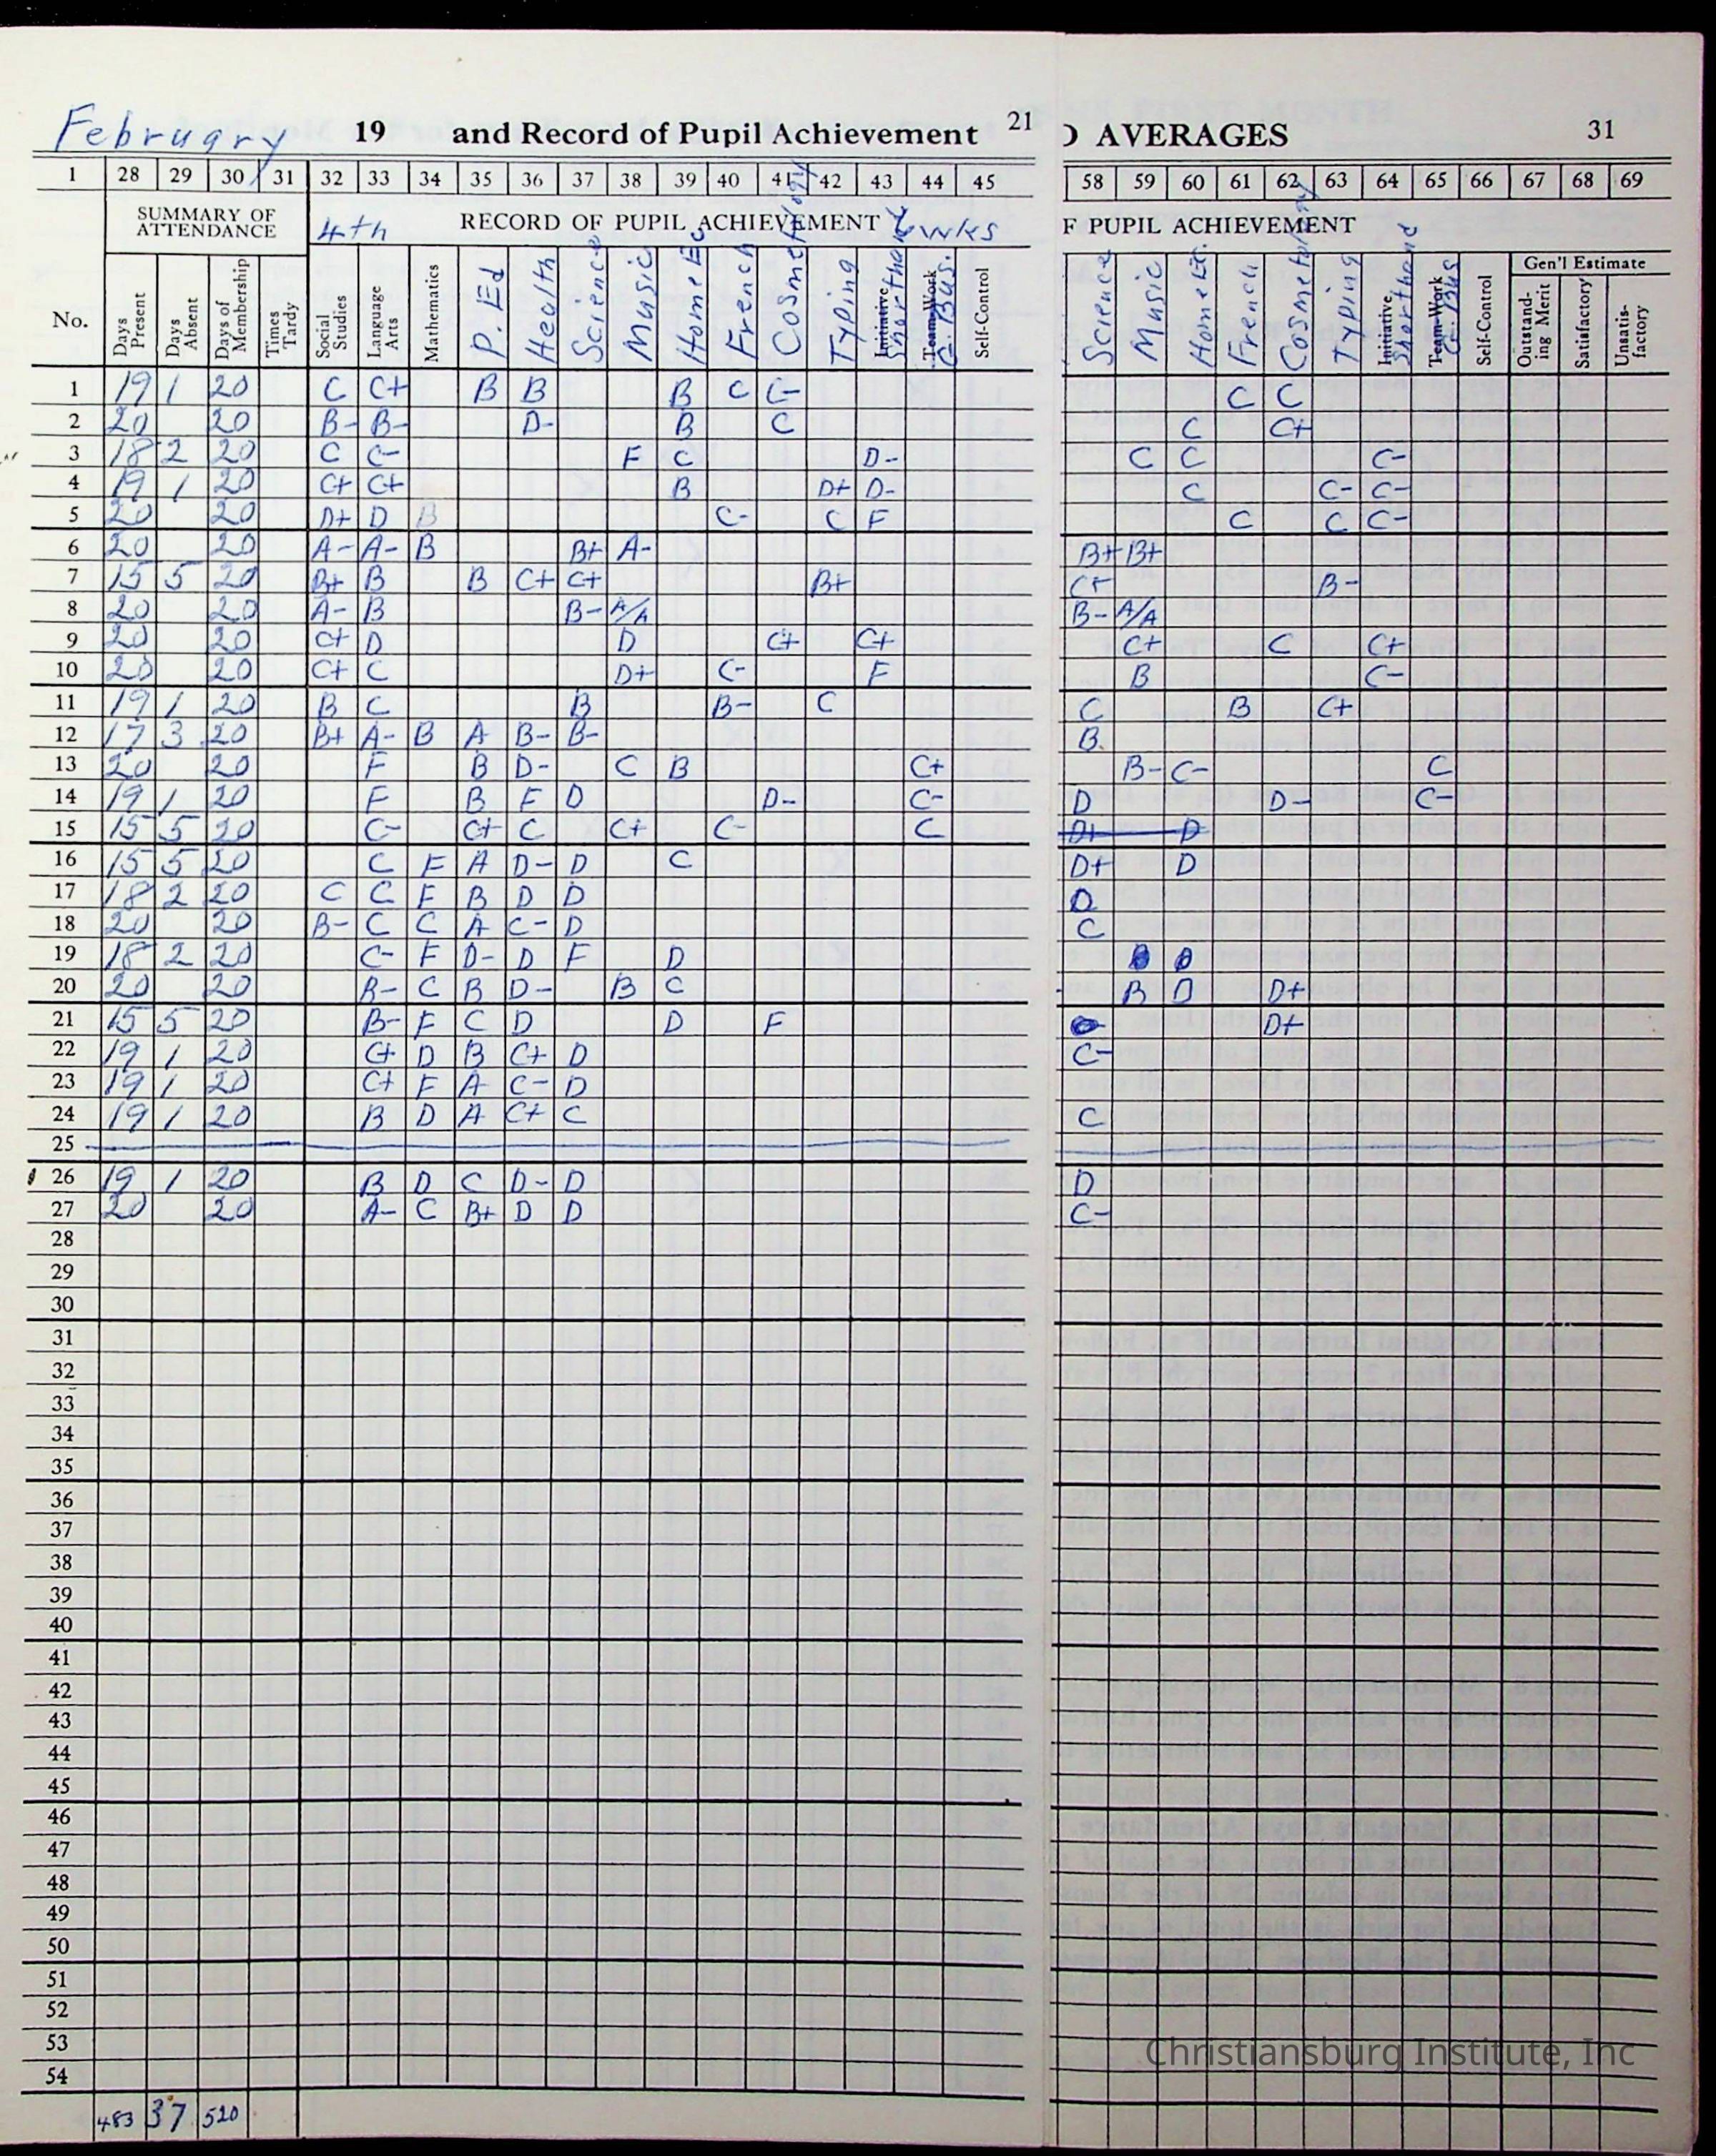 February 19 and Record of Pupil Achievement 21
D AVERAGES 31
1 28 29 30 31 32 33 34 35 36 37 38 39 40 41 42 43 44 45
58 59 60 61 62 63 64 65 66 67 68 69
SUMMARY OF ATTENDANCE 4th RECORD OF PUPIL ACHIEVEMENT 6 wks
F PUPIL ACHIEVEMENT
Gen'l Estimate
No. Days Present Days Absent Days of Membership Times Tardy Social Studies Language Arts Mathematics P. Ed Health Science Music Home Ec French Cosmetology Typing Initiative Shorthand Team-Work G. Bus. Self-Control
Science Music Home Ec. French Cosmetology Typing Initiative Shorthand Team-Work G. Bus Self-Control Outstanding Merit Satisfactory Unsatisfactory
1 19 1 20 C C+ B B B C C- C C
2 20 20 B- B- D- B C C C+
3 18 2 20 C C- F C D- C C C-
4 19 1 20 C+ C+ B D+ D- C C- C-
5 20 20 D+ D B C- C F C C C-
6 20 20 A- A- B B+ A- B+ B+
7 15 5 20 B+ B B C+ C+ B+ C+ B-
8 20 20 A- B B- A/A B- A/A
9 20 20 C+ D D C+ C+ C+ C C+
10 20 20 C+ C D+ C- F B C-
11 19 1 20 B C B B- C C B C+
12 17 3 20 B+ A- B A B- B- B.
13 20 20 F B D- C B C+ B- C- C
14 19 1 20 F B F D D- C- D D- C-
15 15 5 20 C- C+ C C+ C- C D+ D
16 15 5 20 C F A D- D C D+ D
17 18 2 20 C C F B D D D
18 20 20 B- C C A C- D C
19 18 2 20 C- F D- D F D
20 20 20 B- C B D- B C B D D+
21 15 5 20 B- F C D D F D+
22 19 1 20 C+ D B C+ D C-
23 19 1 20 C+ F A C- D
24 19 1 20 B D A C+ C C
25
26 19 1 20 B D C D- D D
27 20 20 A- C B+ D D C-
28
29
30
31
32
33
34
35
36
37
38
39
40
41
42
43
44
45
46
47
48
49
50
51
52
53
54
483 37 520
Christiansburg Institute, Inc